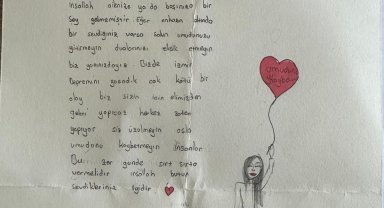 İnşallah ailenize ya da başınıza bir
şey gelmemiştir Eğer enkazın altında
bir sevdiğiniz varsa sakın umudunuzu
yitirmeyin dualarınızı eksik etmeyin
biz yanınızdayız. Bizde izmir
Depremini yaşadık çok kötü bir
olay biz sizin için elimizden
geleni yapıcaz herkez zaten
yapıyor siz üzülmeyin asla
umudunu kaybetmeyin insanlar
Bu zor günde sırt sırta
vermelidir inşallah bütün
sevdikleriniz iyidir
umudunu
kaybetme